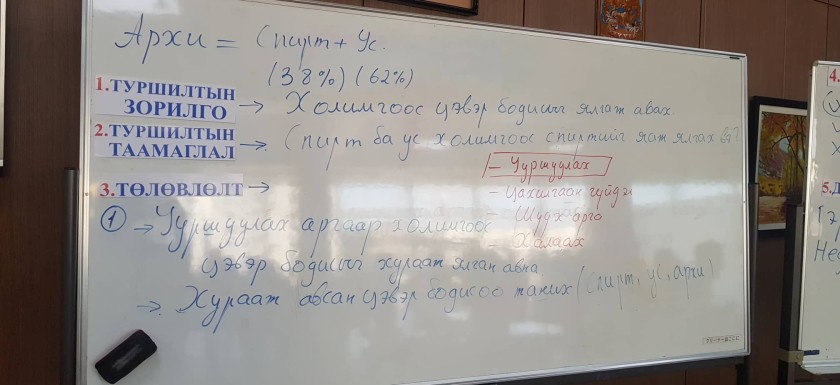 Архи = Спирт + Ус.
(38%) (62%)
1.ТУРШИЛТЫН
ЗОРИЛГО → Холимгоос цэвэр бодисыг ялгаж авах
2.ТУРШИЛТЫН
ТААМАГЛАЛ → Спирт ба ус холимгоос спиртийг яаж ялгах вэ?
- Ууршуулах
3.ТӨЛӨВЛӨЛТ →
- Цахилгаан гүйдэл
- Шүүх арга
- Халаах
① → Ууршуулах аргаар холимгоос
цэвэр бодисыг хураан ялган авна
→ Хурааж авсан цэвэр бодисоо таних (спирт, ус, архи)
4.
5.Д